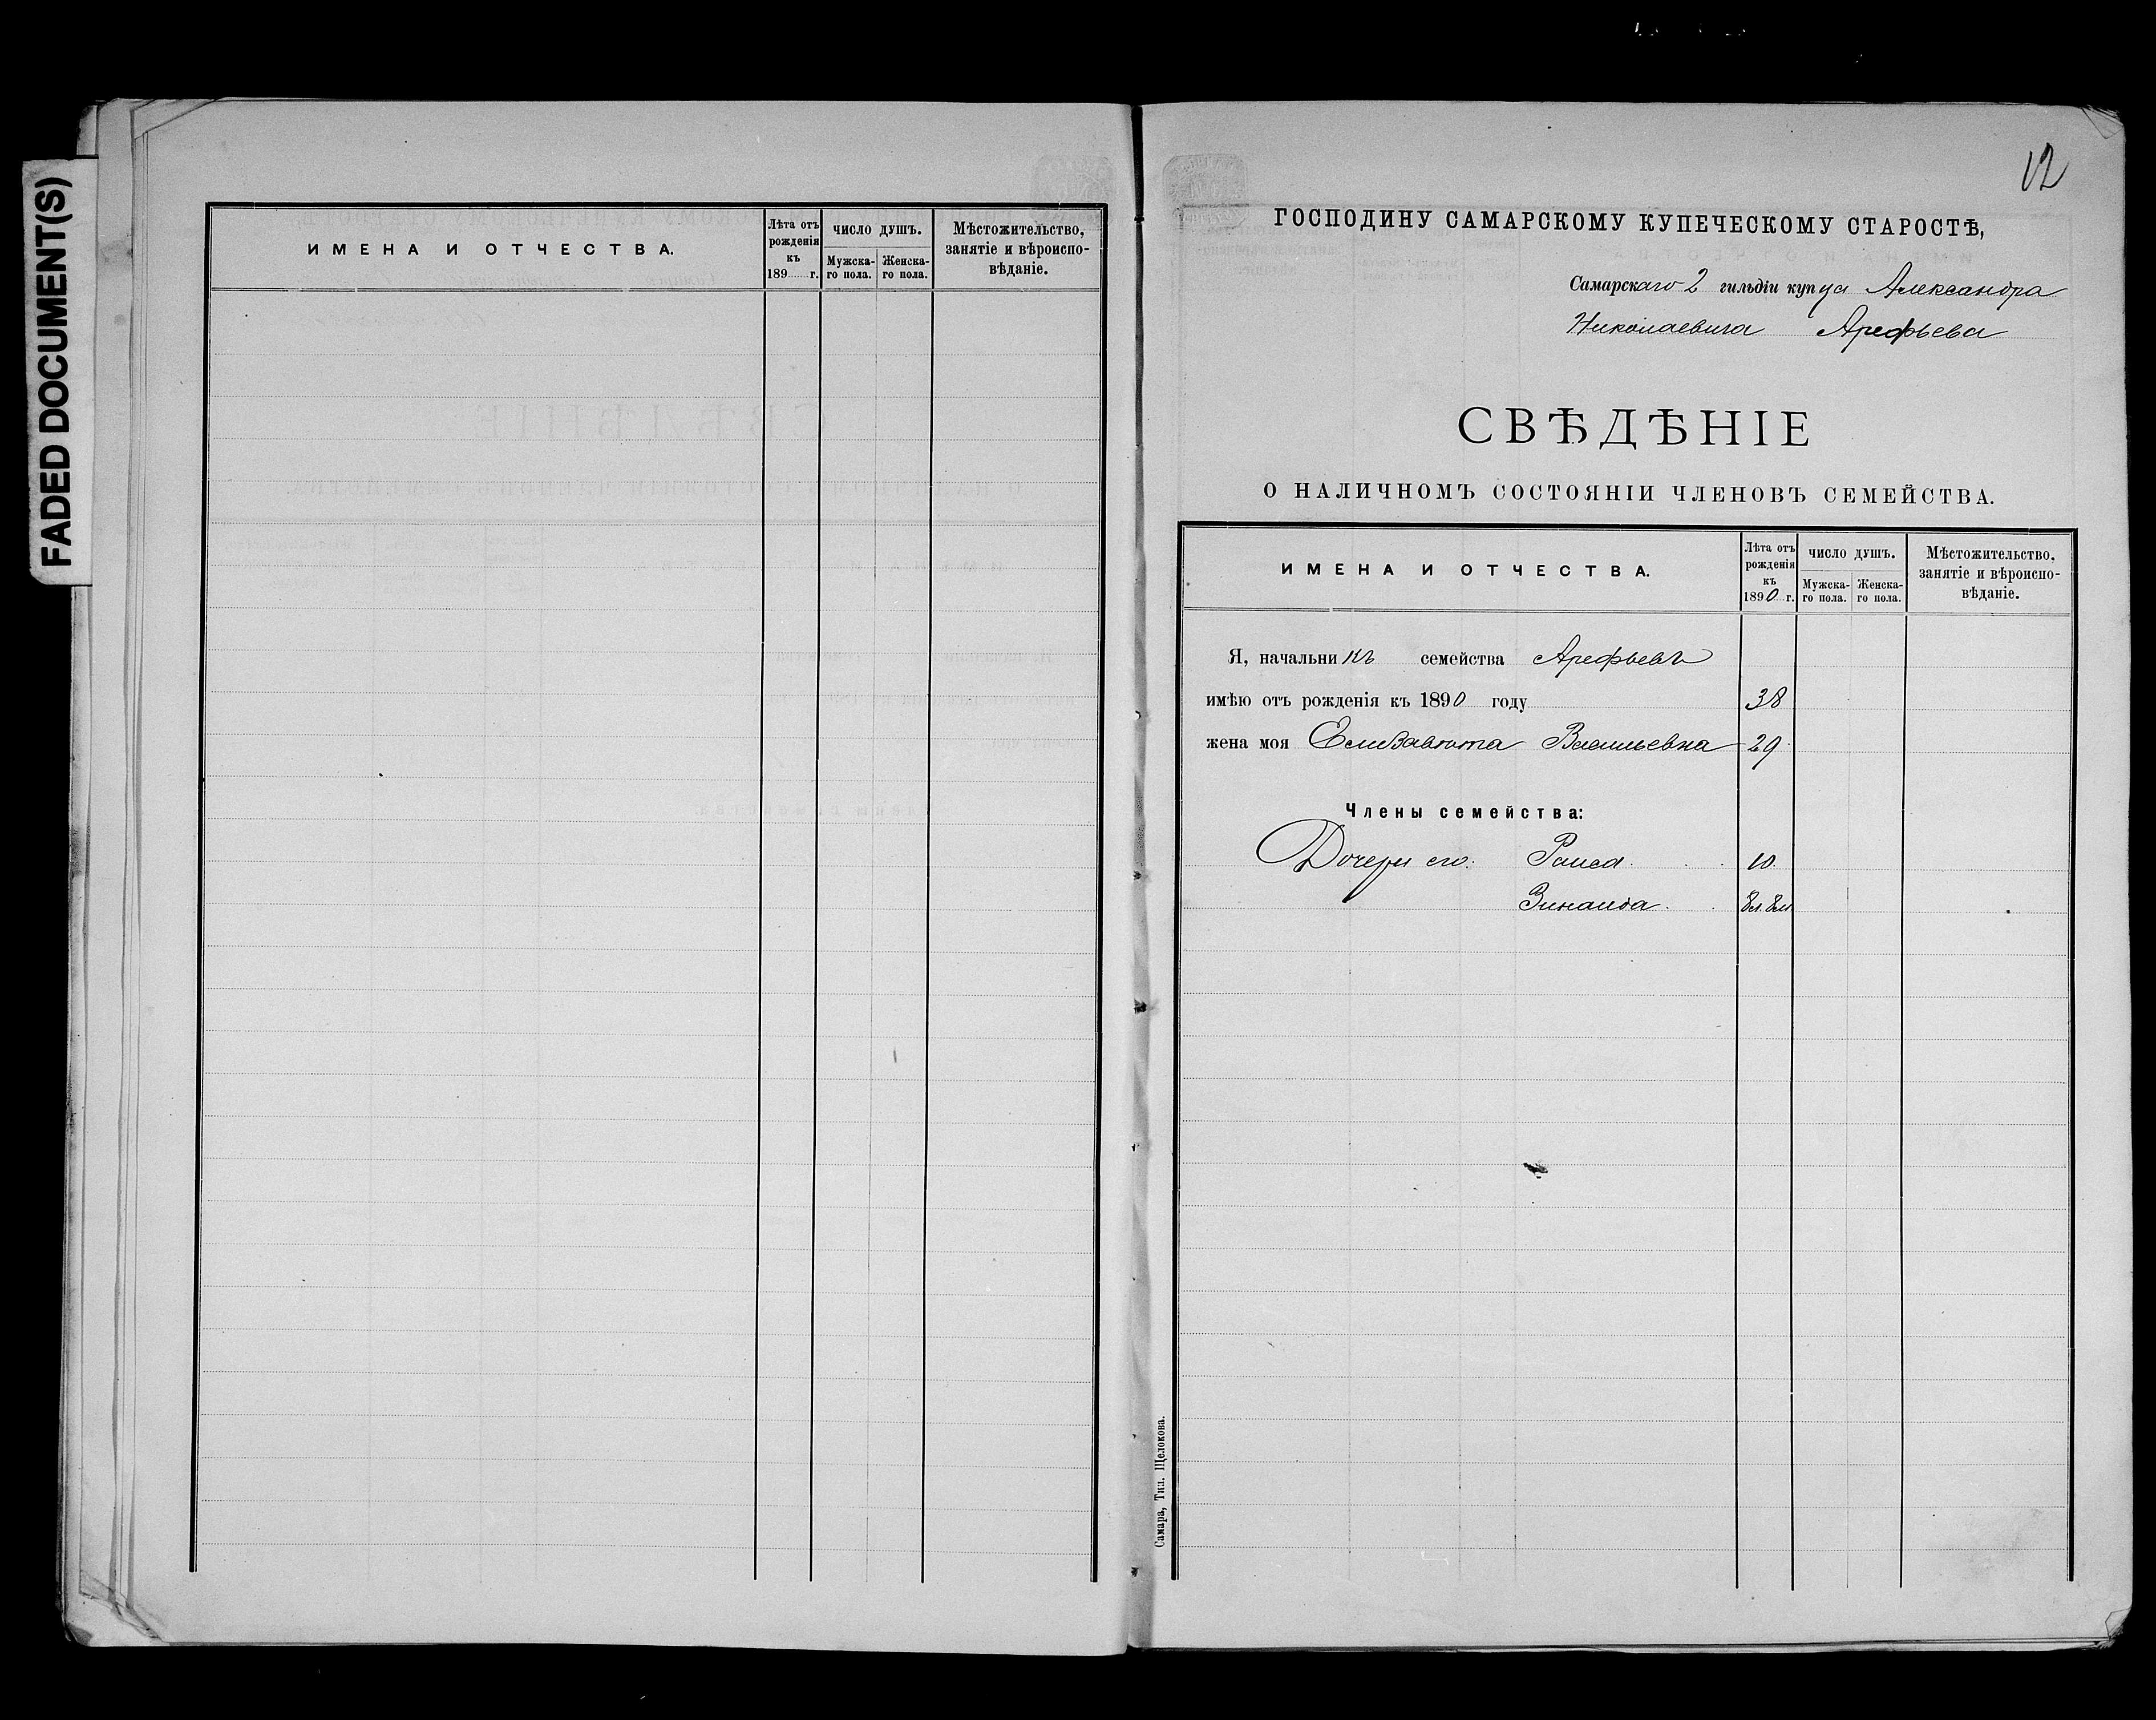 FADED DOCUMENT(S)
ИМЕНА И ОТЧЕСТВА.
Лѣта отъ рожденія къ 189 г.
ЧИСЛО ДУШЪ.
Мужска-го пола.
Женска-го пола.
Мѣстожительство,
занятіе и вѣроиспо-
вѣданіе.
12
ГОСПОДИНУ САМАРСКОМУ КУПЕЧЕСКОМУ СТАРОСТѢ,
Самарскаго 2 гильдіи купца Александра
Николаевича Арефьева
СВѢДѢНІЕ
О НАЛИЧНОМЪ СОСТОЯНІИ ЧЛЕНОВЪ СЕМЕЙСТВА.
ИМЕНА И ОТЧЕСТВА.
Лѣта отъ рожденія къ 1890 г.
ЧИСЛО ДУШЪ.
Мужска-го пола.
Женска-го пола.
Мѣстожительство,
занятіе и вѣроиспо-
вѣданіе.
Я, начальникъ семейства Арефьевъ
имѣю отъ рожденія къ 1890 году 38
жена моя Елизавета Васильевна 29
Члены семейства:
Дочери его: Раиса 10
Зинаида
Самара, Тип. Щелокова.